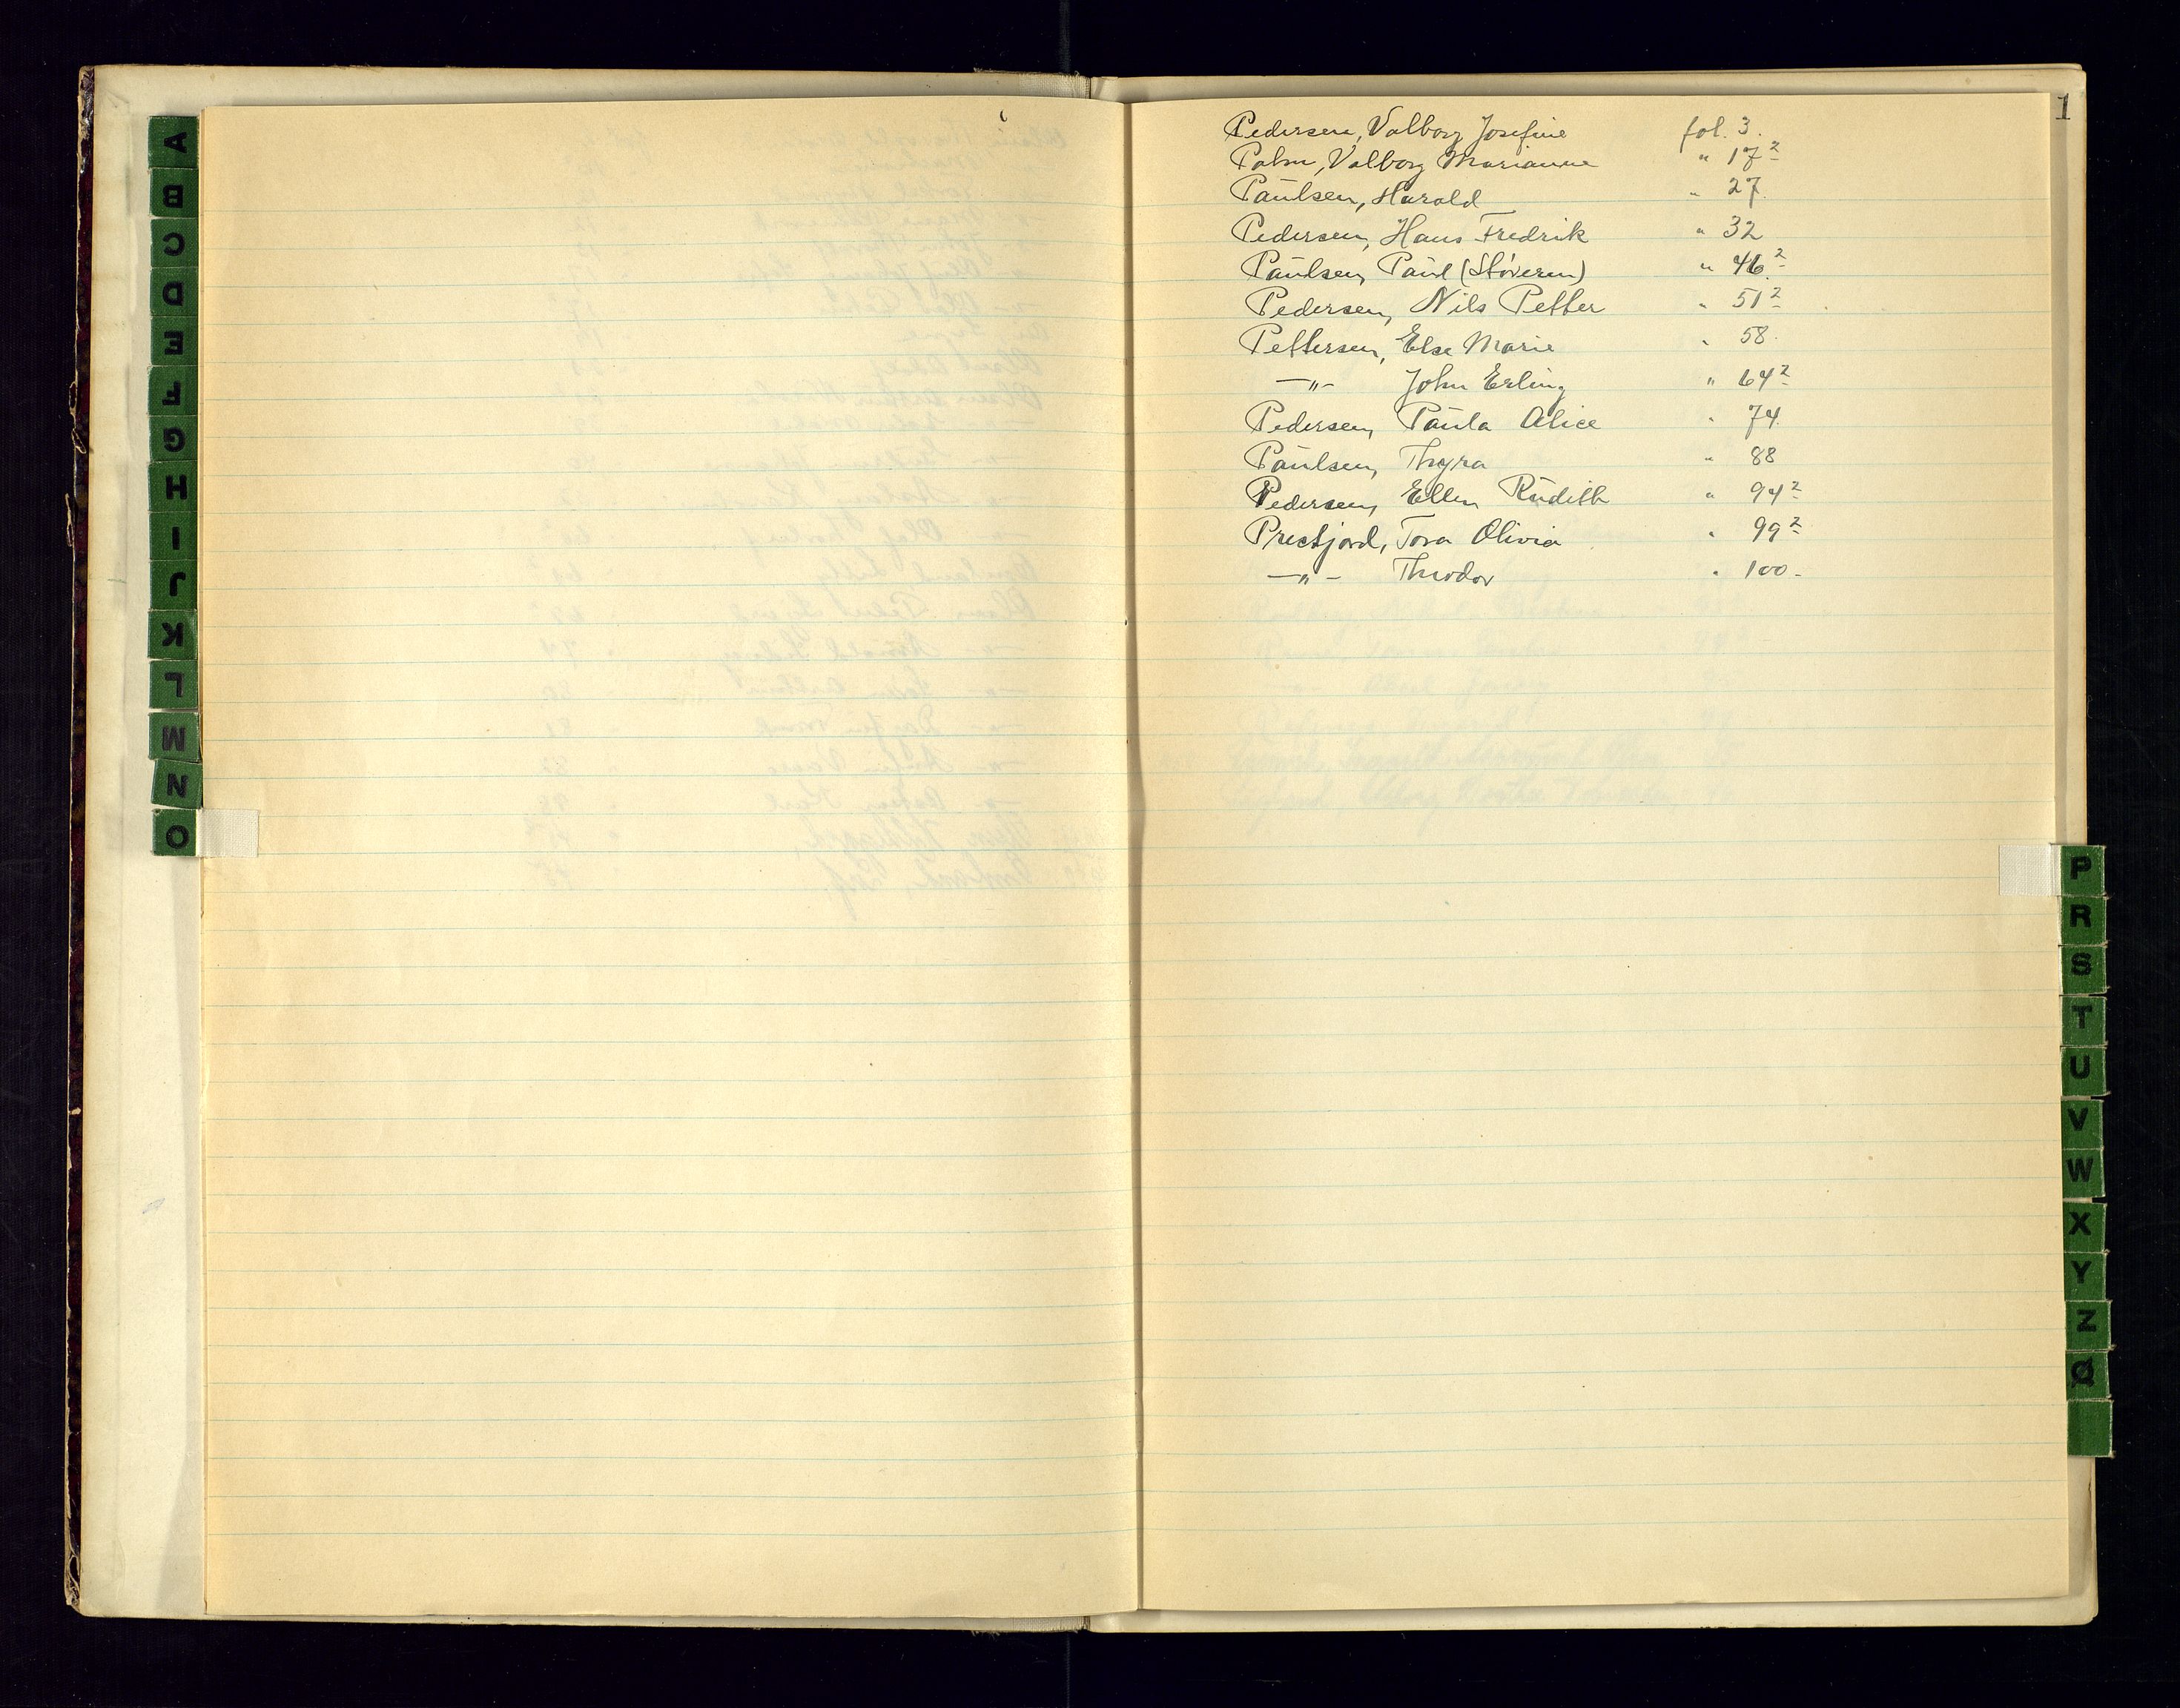 A
B
C
D
E
F
G
H
I
J
K
L
M
N
O
1
Pedersen, Valborg Josefine fol. 3.
Palm, Valborg Marianne " 17²
Paulsen, Harald " 27.
Pedersen, Hans Fredrik " 32
Paulsen, Paul (Støveren) " 46.²
Pedersen, Nils Petter " 51²
Pettersen, Else Marie " 58.
—"— John Erling " 64²
Pedersen, Paula Alice " 74.
Paulsen, Thyra " 88
Pedersen, Ellen Rudith " 94²
Prestjord, Tora Olivia " 99²
—"— Theodor " 100-
P
R
S
T
U
V
W
X
Y
Z
Ø